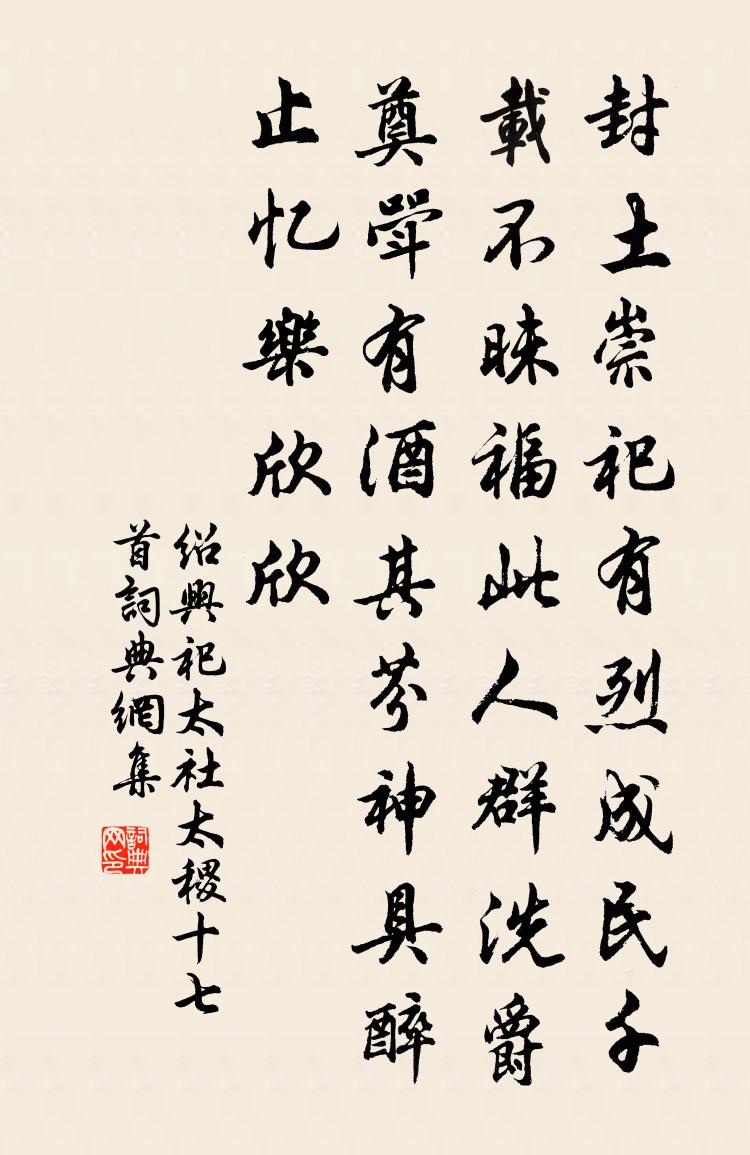 封土崇祀有烈成民千
載不昧福此人群洗爵
奠斝有酒其芬神具醉
止忆樂欣欣
绍興祀太社太稷十七
首詞典網集
詞典
网印